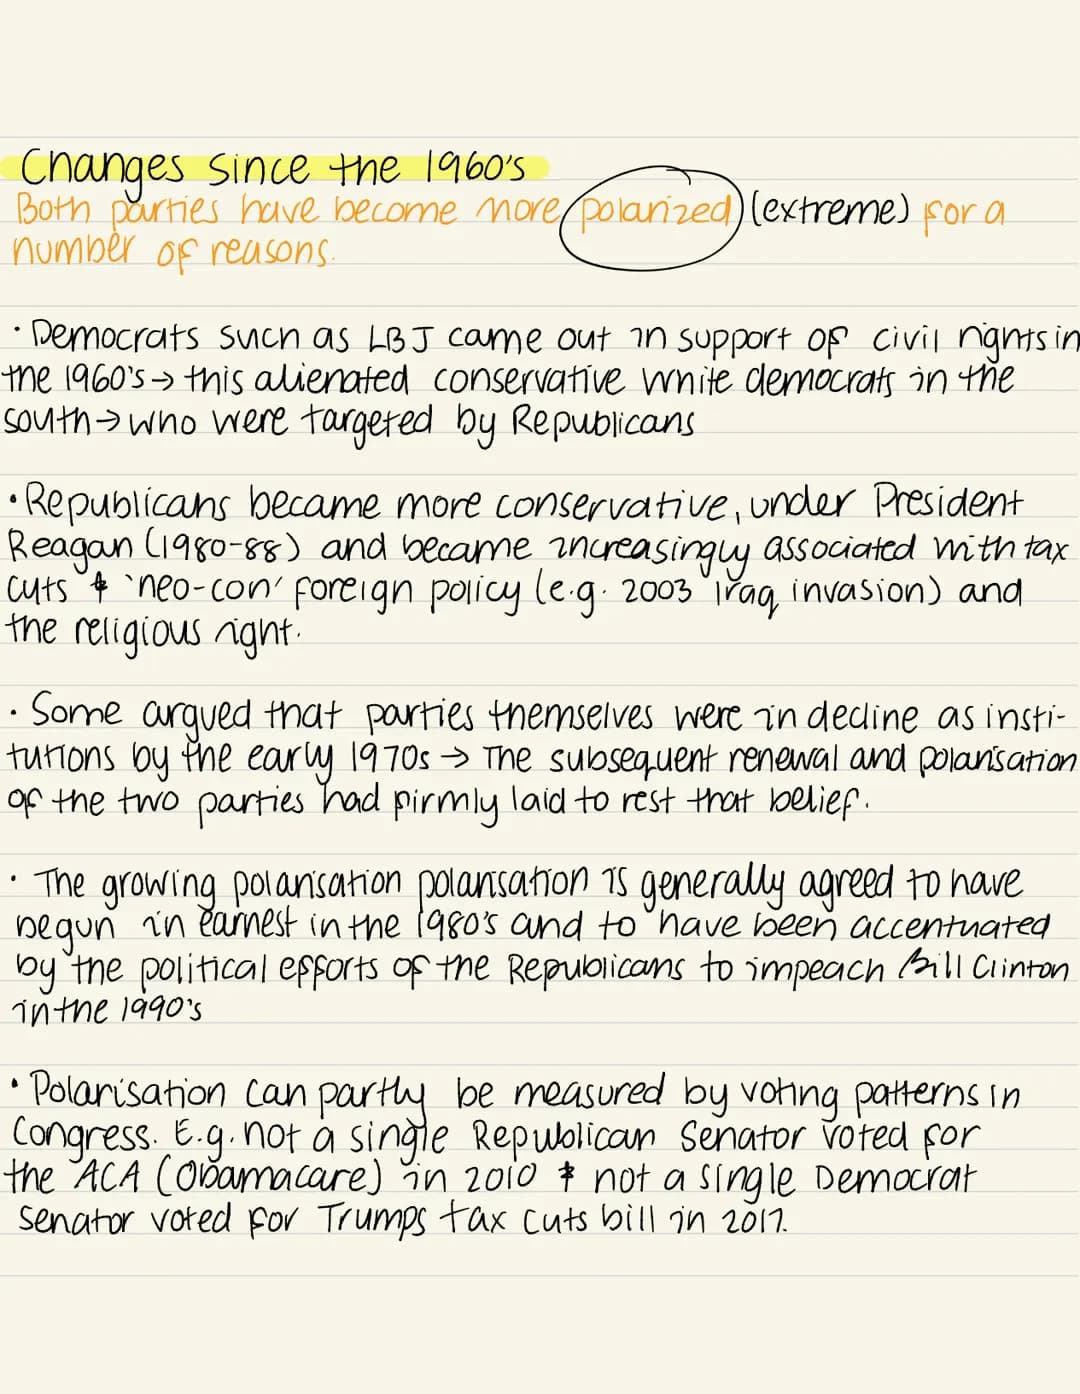 Changes since the 1960's
Both parties have become more polarized (extreme) for a
number of reasons.
· Democrats such as LBJ came out in support of civil rights in
the 1960's → this alienated conservative white democrats in the
south → who were targeted by Republicans
· Republicans became more conservative, under President
Reagan (1980-88) and became increasingly associated with tax
cuts & 'neo-con' foreign policy (e.g. 2003 Iraq invasion) and
the religious right.
· Some argued that parties themselves were in decline as insti-
tutions by the early 1970s → The subsequent renewal and polarisation
of the two parties had firmly laid to rest that belief.
· The growing polarisation polarisation is generally agreed to have
begun in earnest in the 1980's and to have been accentuated
by the political efforts of the Republicans to impeach Bill Clinton
in the 1990's
· Polarisation can partly be measured by voting patterns in
Congress. E.g. not a single Republican Senator voted for
the ACA (Obamacare) in 2010 & not a single Democrat
Senator voted for Trumps tax cuts bill in 2017.